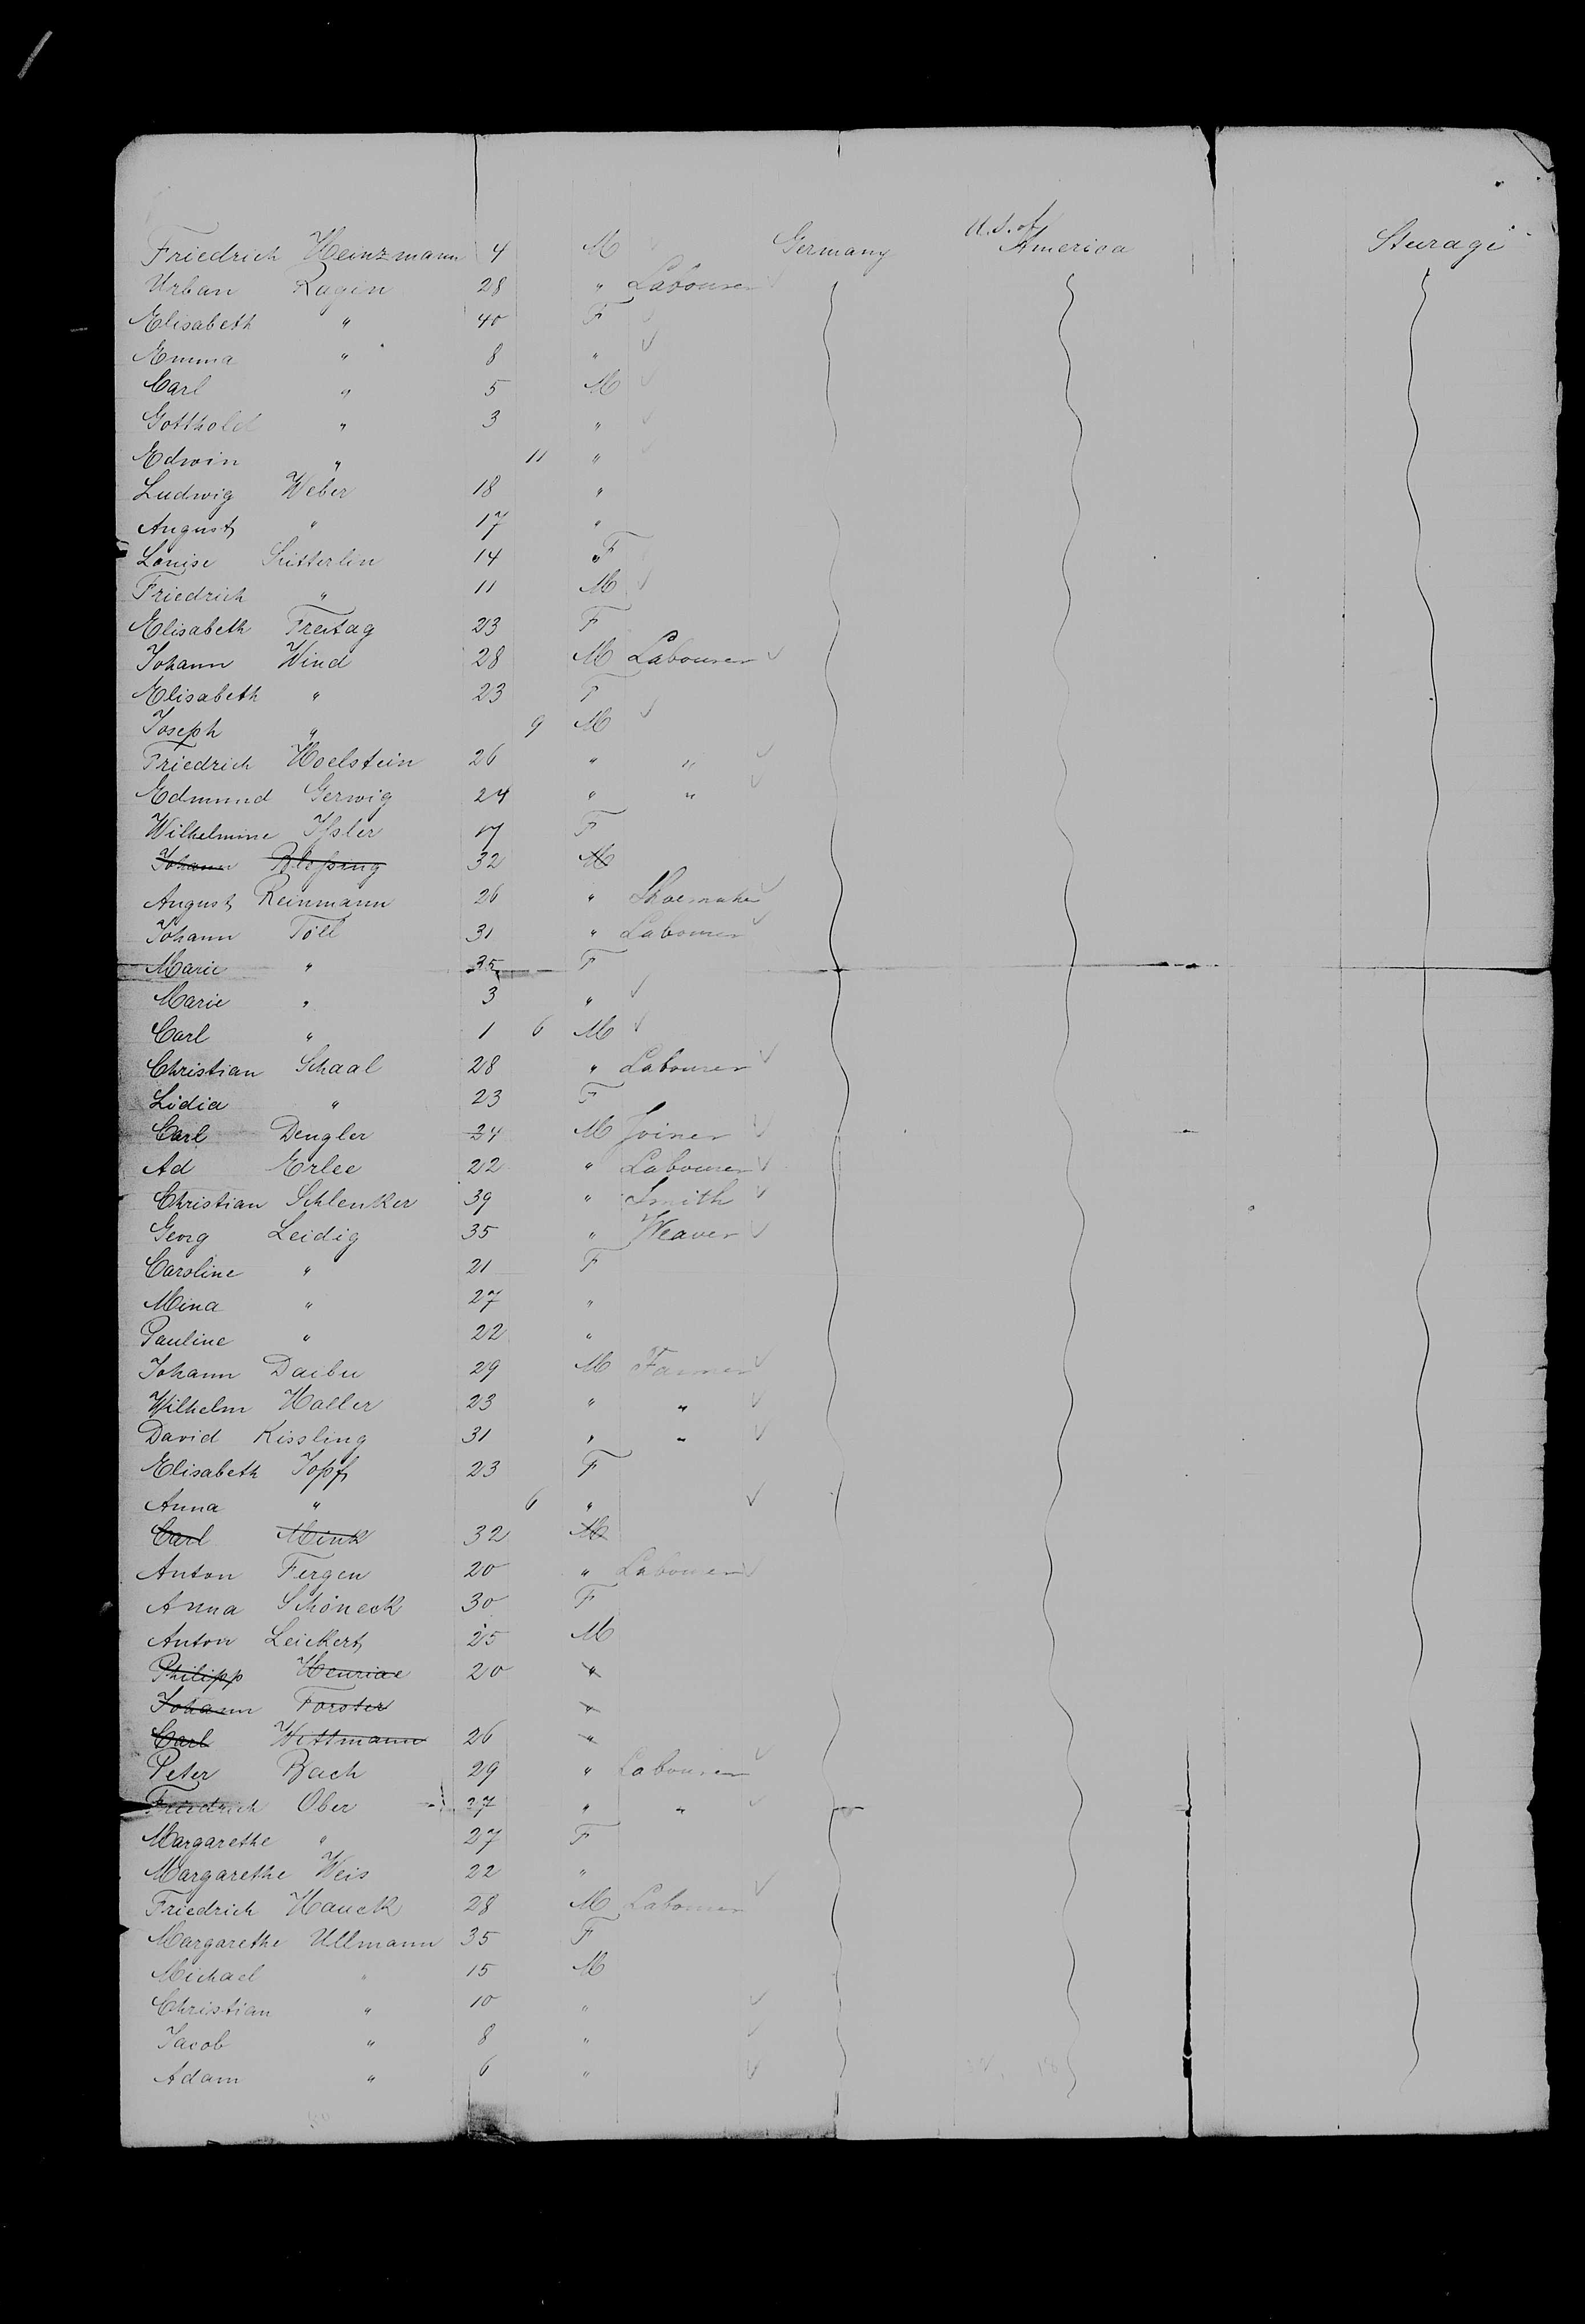 Friedrich Heinzmann 4 M Germany U.S. of America Sturage
Urban Ragin 28 " Labourer
Elisabeth " 40 F
Emma " 8 "
Carl " 5 M
Gotthold " 3 "
Edwin " 11 "
Ludwig Weber 18 "
August " 17 "
Louise Sütterlin 14 F
Friedrich " 11 M
Elisabeth Freitag 23 F
Johann Wind 28 M Labourer
Elisabeth " 23 F
Joseph " 9 M
Friedrich Hoelstein 26 " "
Edmund Gerwig 24 " "
Wilhelmine Issler 17 F
Johann Blessing 32 M
August Reinmann 26 " Shoemaker
Johann Töll 31 " Labourer
Marie " 35 F
Marie " 3 "
Carl " 1 6 M
Christian Schaal 28 " Labourer
Lidia " 23 F
Carl Dengler 24 M Joiner
Ad Erlee 22 " Labourer
Christian Schlenker 39 " Smith
Georg Leidig 35 " Weaver
Caroline " 21 F
Mina " 27 "
Pauline " 22 "
Johann Daibu 29 M Farmer
Wilhelm Haller 23 " "
David Kissling 31 " "
Elisabeth Jopf 23 F
Anna " 6 "
Carl Mink 32 M
Anton Fergen 20 " Labourer
Anna Schöneck 30 F
Anton Leickert 25 M
Philipp 20 "
Johann Forster "
Carl Wittmann 26 "
Peter Bach 29 " Labourer
Friedrich Ober 27 " "
Margarethe " 27 F
Margarethe Weis 22 "
Friedrich Hauck 28 M Labourer
Margarethe Ullmann 35 F
Michael " 15 M
Christian " 10 "
Jacob " 8 "
Adam " 6 "